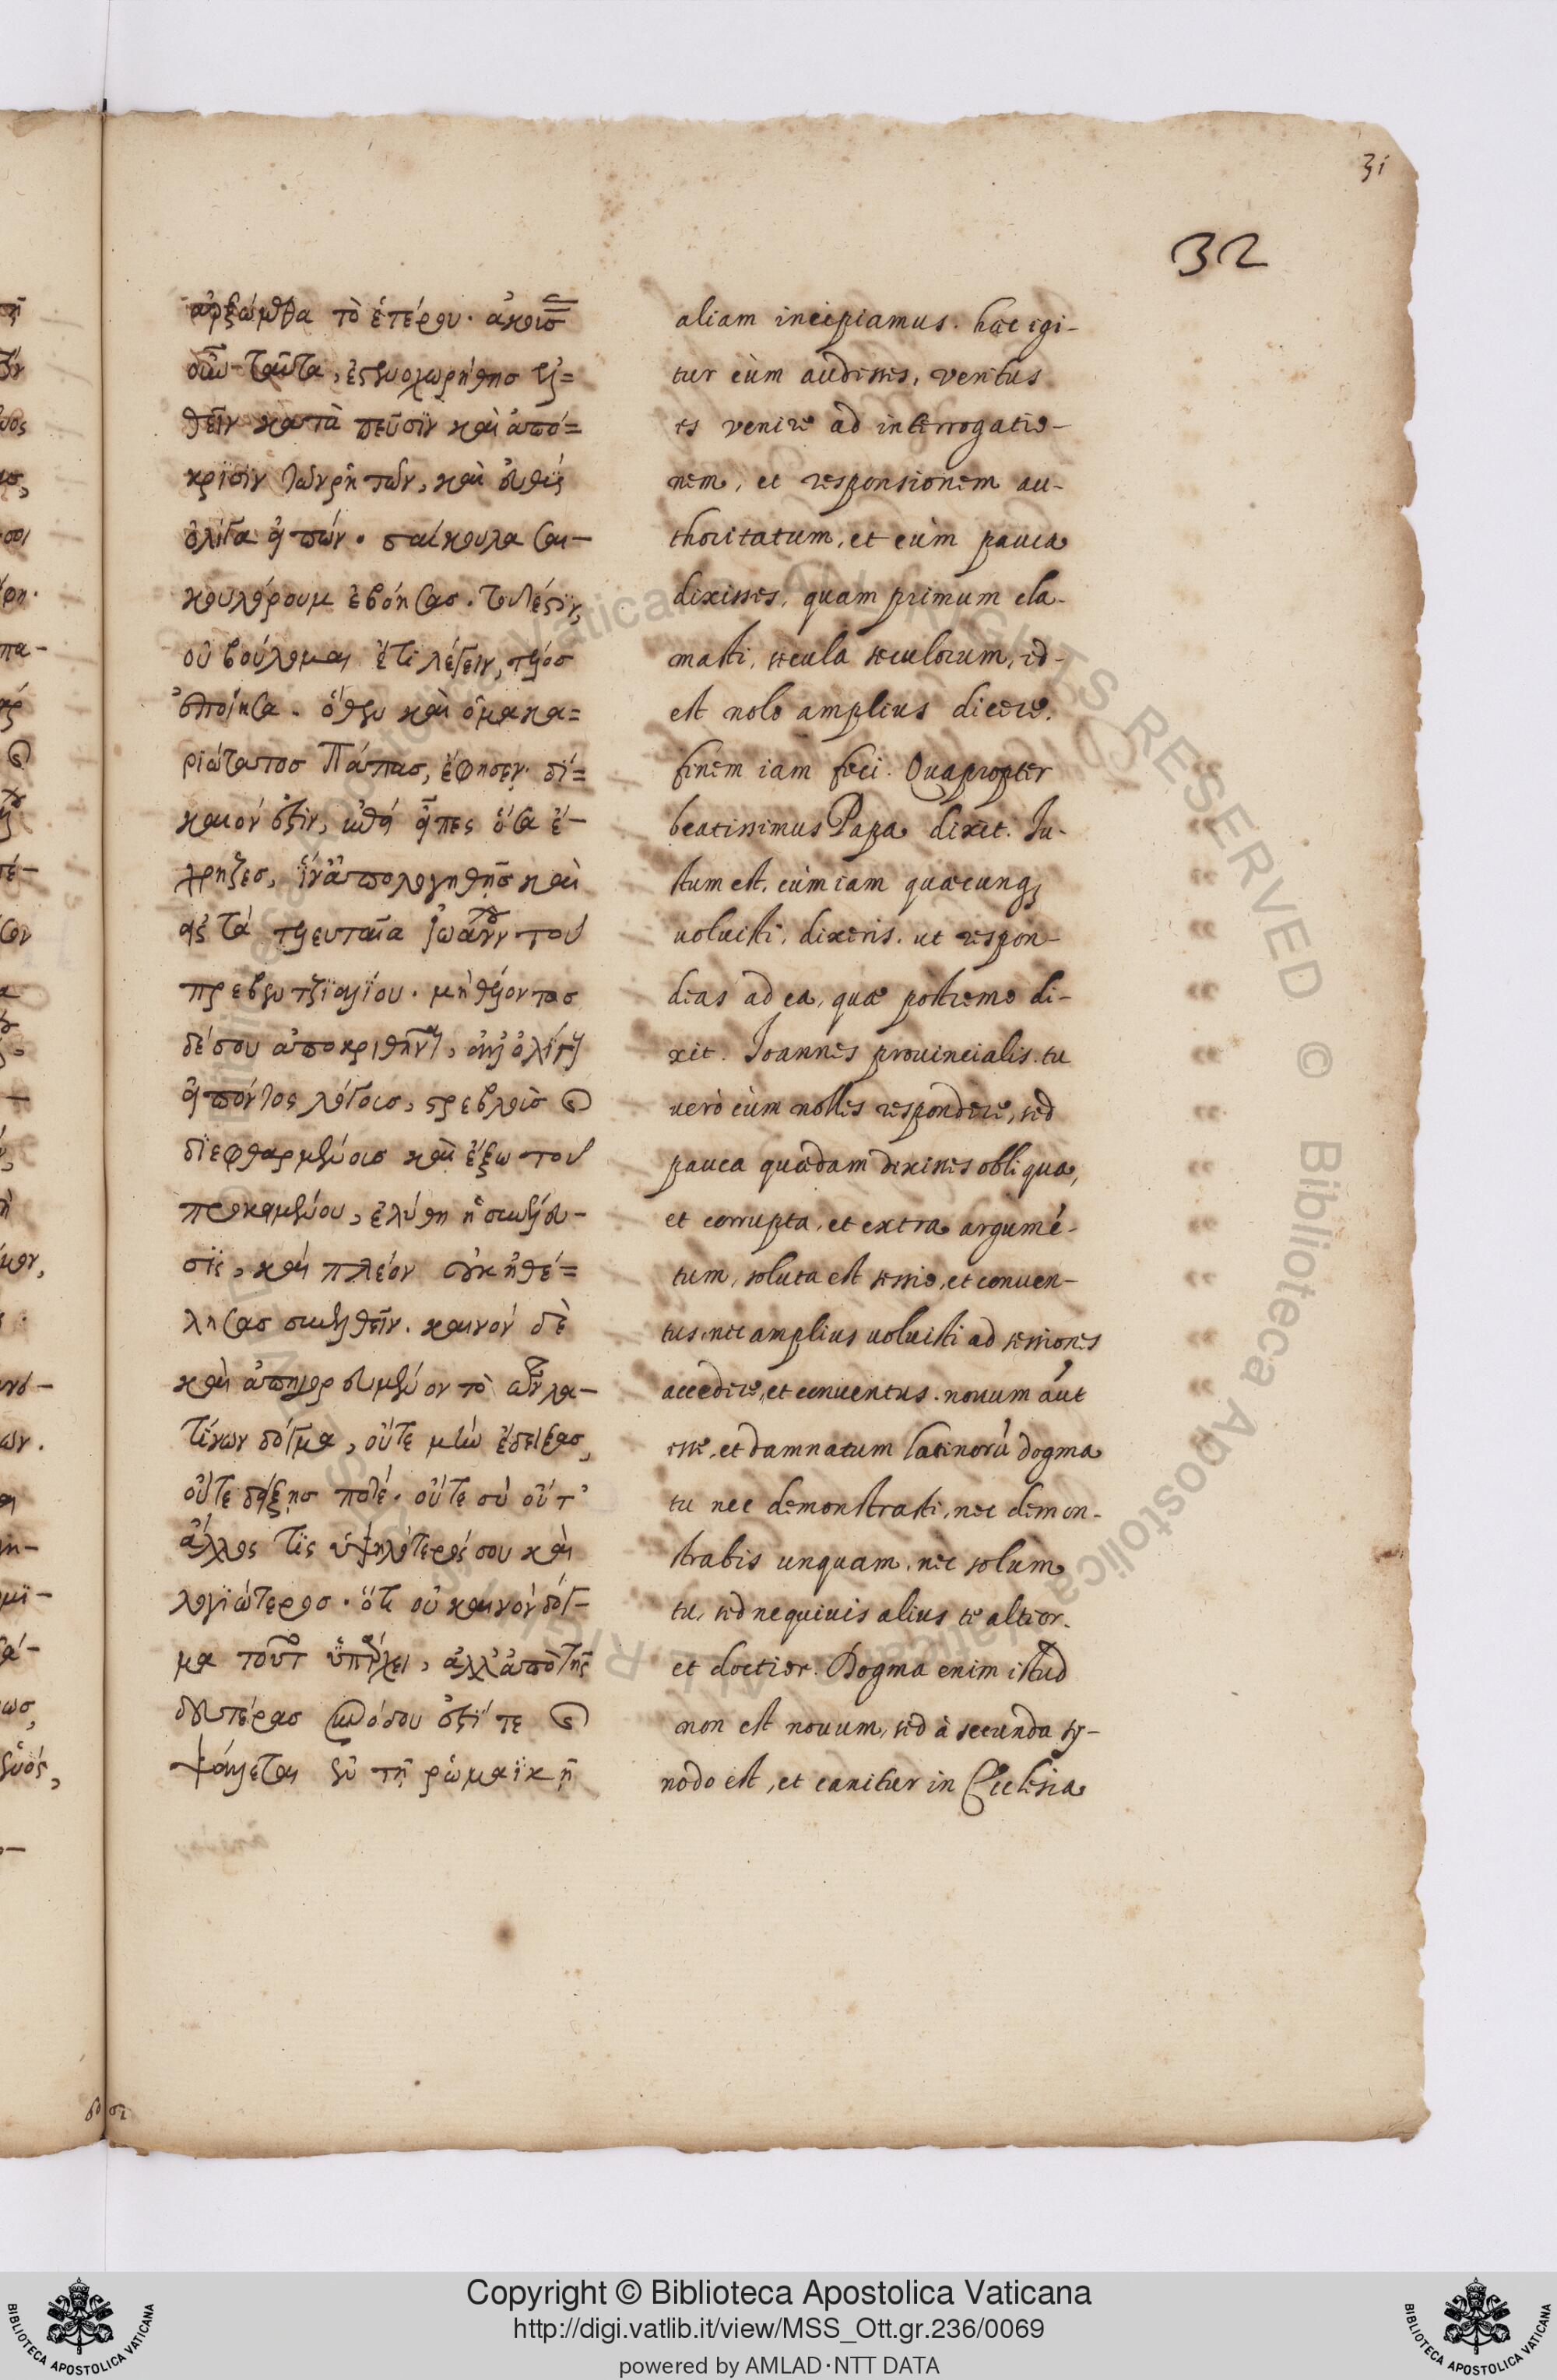 31
32
ἀρξώμεθα τὸ ἑτέρου. ἀκούσ
οὖν ταῦτα, ἐστενοχωρήθησ ἐλ=
θεῖν κατὰ πεῦσιν καὶ ἀπό=
κρισιν τῶν ῥητῶν, καὶ εὐθὺς
ὀλίγα εἰπών. σαίκουλα σαι-
κουλόρουμ ἐβόησασ. τουτέστιν,
οὐ βούλομαι ἔτι λέγειν, τέλοσ
ἐποίησα. ὅθεν καὶ ὁ μακα=
ριώτατοσ Πάπασ, ἔφησεν. δί=
καιόν ἐστιν, εἶπες ὅσα ἔ-
χρηζεσ, ἵν ἀπολογηθῇσ καὶ
εἰς τὰ τελευταῖα Ἰωάννου τοῦ
προβεντζιαλίου. μὴ θέλοντοσ
δέ σου ἀποκριθῆναι, ἀλλ ὀλίγοις
εἰπόντος λόγοισ, στρεβλοῖσ καὶ
διεφθαρμένοισ καὶ ἔξω τοῦ
προκειμένου, ἐλύθη ἡ συνέλευ-
σις, καὶ πλέον οὐκ ἠθέ=
λησασ συνελθεῖν. καινὸν δὲ
καὶ ἀπηγορευμένον τὸ τῶν λα-
τίνων δόγμα, οὔτε μὴν ἔδειξασ,
οὔτε δείξησ ποτέ. οὔτε σὺ οὔτ'
ἄλλος τὶς ὑψηλότερός σου καὶ
λογιώτεροσ. ὅτι οὐ καινὸν δόγ-
μα τοῦτο ὑπάρχει, ἀλλ' ἀπὸ τῆς
δευτέρασ συνόδου ἐστί τε καὶ
ψάλλεται ἐν τῇ ρωμαϊκῇ
aliam incipiamus. haec igi-
tur cùm audisses, veritus
es venire ad interrogatio-
nem, et responsionem au-
thoritatum, et cùm pauca
dixisses, quam primum cla-
masti, secula seculorum, id-
est nolo amplius dicere.
finem iam feci. Quapropter
beatissimus Papa dixit. Iu-
stum est, cùm iam quaecunq;
voluisti, dixeris, ut respon-
deas ad ea, quae postremo di-
xit. Ioannes provincialis. tu
verò cùm nolles respondere, sed
pauca quaedam dixisses obliqua,
et corrupta, et extra argumé-
tum, soluta est sessio, et conuen-
tus, nec amplius uoluisti ad sessiones
accedere, et conuentus. nouum áut
esse, et damnatum latinorú dogma
tu nec demonstrasti, nec demon-
strabis unquam, nec solum
tu, sed nequiuis alius te altior
et doctior. Dogma enim istud
non est nouum, sed à secunda sy-
nodo est, et canitur in Ecclesia
Copyright © Biblioteca Apostolica Vaticana
http://digi.vatlib.it/view/MSS_Ott.gr.236/0069
powered by AMLAD·NTT DATA